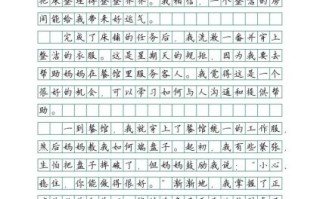 把床整理得整整齐齐。我相信，一个整洁的房
间能给我带来好运气。
完成了床铺的任务后，我洗漱一番并穿上
整洁的衣服。这是星期天的规矩，因为我要去
帮助妈妈在餐馆里服务客人。我觉得这是一个
很好的机会，可以学习如何与人沟通和提供帮
助。
一到餐馆，我就穿上了餐馆统一的工作服，
然后妈妈教我如何端盘子。起初，我有些紧张，
生怕把盘子摔破了，但妈妈鼓励我说：“小心
稳住，你能做得很好。”渐渐地，我掌握了正